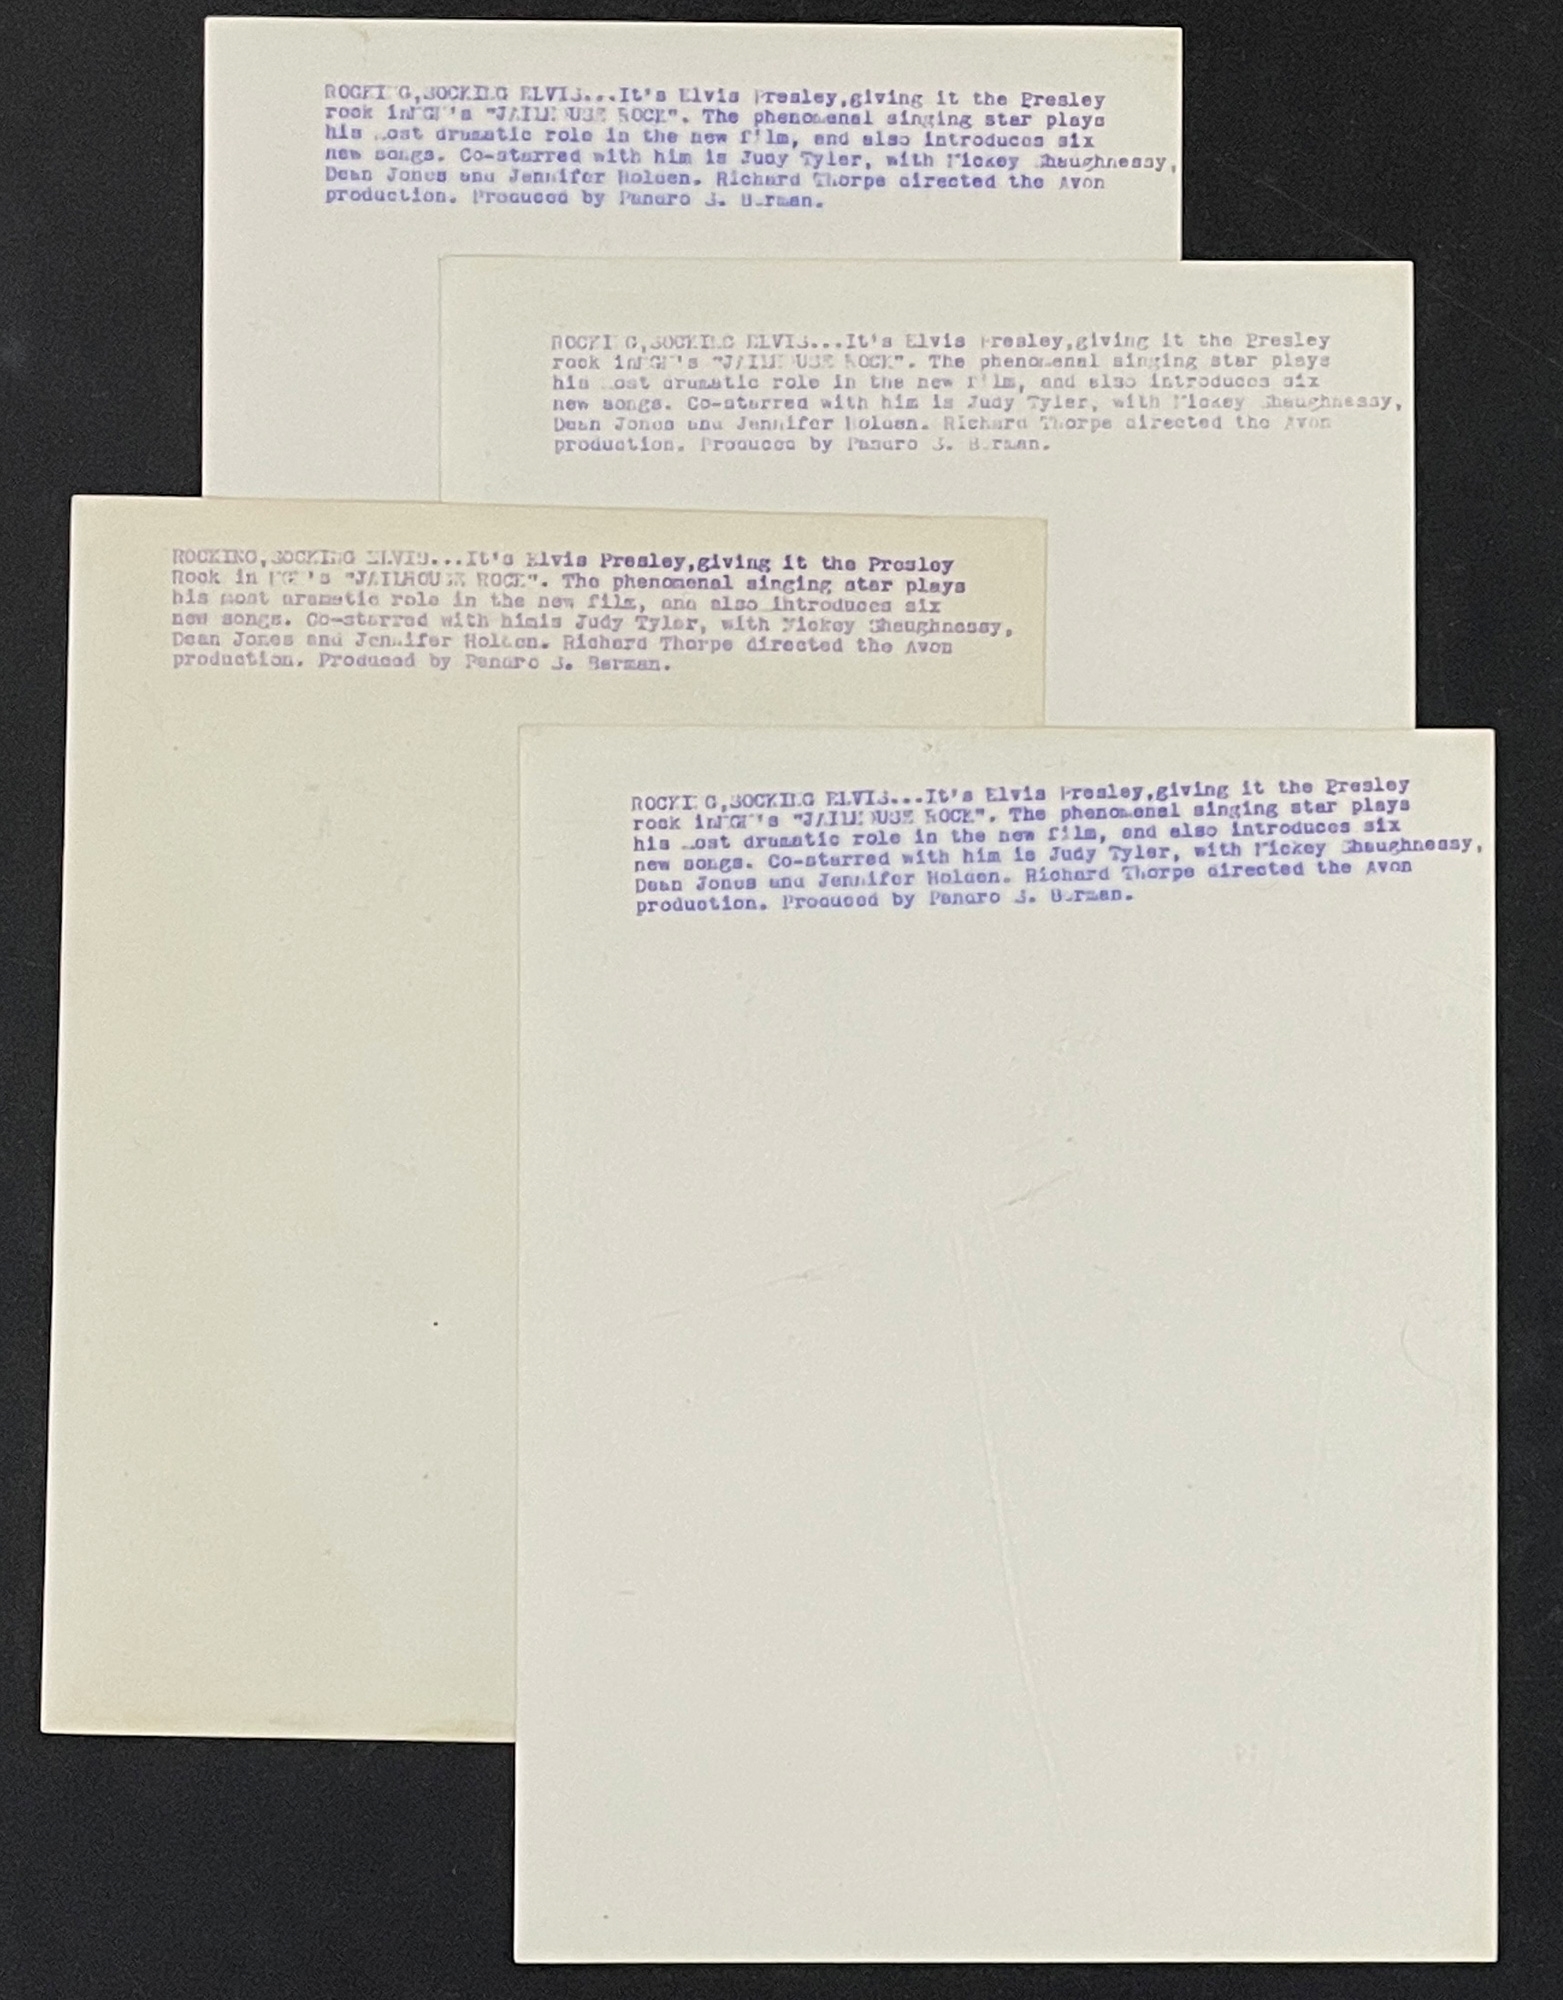 ROCKING,SOCKING ELVIS...It's Elvis Presley,giving it the Presley
rock inMGM's "JAILHOUSE ROCK". The phenomenal singing star plays
his most dramatic role in the new film, and also introduces six
new songs. Co-starred with him is Judy Tyler, with Mickey Shaughnessy,
Dean Jones and Jennifer Holden. Richard Thorpe directed the Avon
production. Produced by Pandro S. Berman.
ROCKING,SOCKING ELVIS...It's Elvis Presley,giving it the Presley
rock inMGM's "JAILHOUSE ROCK". The phenomenal singing star plays
his most dramatic role in the new film, and also introduces six
new songs. Co-starred with him is Judy Tyler, with Mickey Shaughnessy,
Dean Jones and Jennifer Holden. Richard Thorpe directed the Avon
production. Produced by Pandro S. Berman.
ROCKING,SOCKING ELVIS...It's Elvis Presley,giving it the Presley
Rock in MGM's "JAILHOUSE ROCK". The phenomenal singing star plays
his most dramatic role in the new film, and also introduces six
new songs. Co-starred with himis Judy Tyler, with Mickey Shaughnessy,
Dean Jones and Jennifer Holden. Richard Thorpe directed the Avon
production. Produced by Pandro S. Berman.
ROCKING,SOCKING ELVIS...It's Elvis Presley,giving it the Presley
rock inMGM's "JAILHOUSE ROCK". The phenomenal singing star plays
his most dramatic role in the new film, and also introduces six
new songs. Co-starred with him is Judy Tyler, with Mickey Shaughnessy,
Dean Jones and Jennifer Holden. Richard Thorpe directed the Avon
production. Produced by Pandro S. Berman.